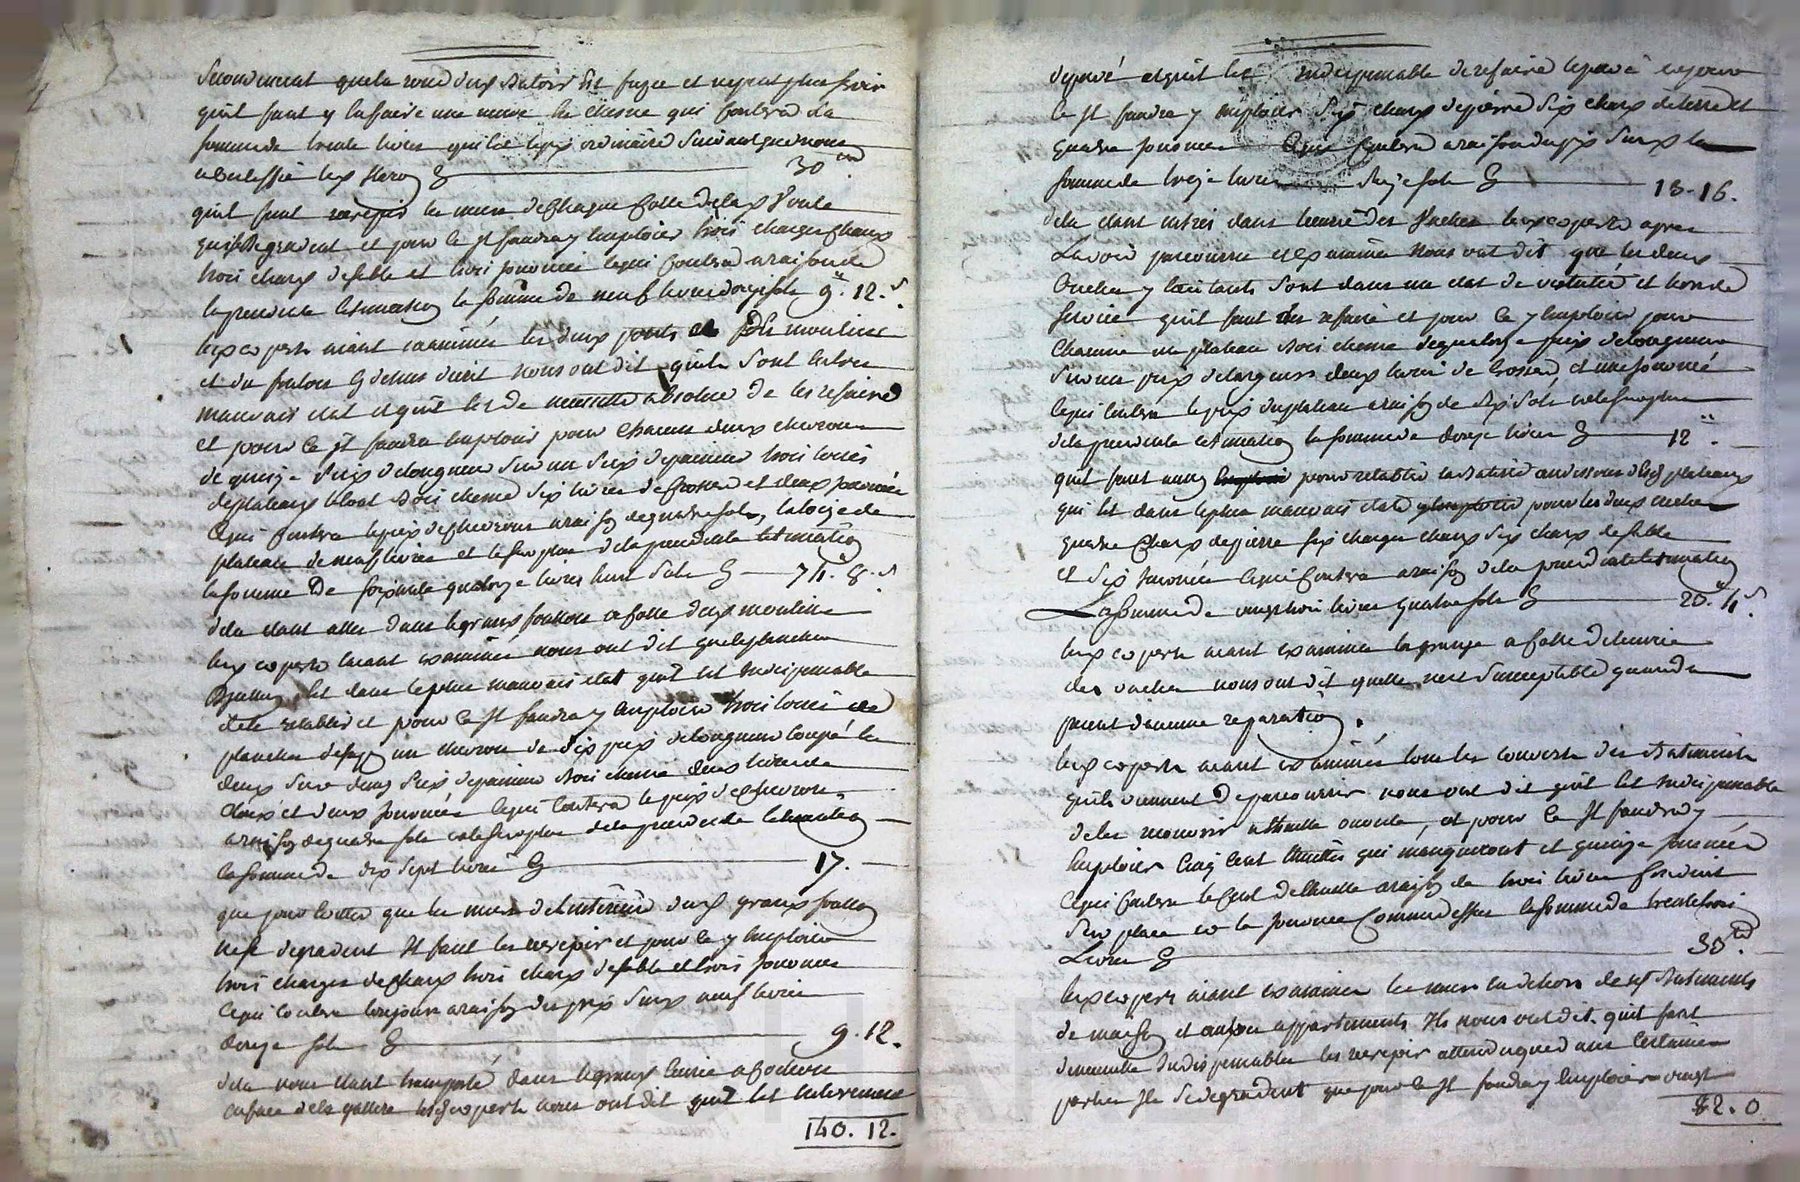 secondement que la roue desd batoir est fuzee et ne peut plus servir
qu'il faut y en faire une neuve de chesne qui coutera la
somme de trente livres qui est le prix ordinaire suivant que nous
a lesd experts 30
qu'il faut recrepir les murs de chaque costé de la voute
qui se degradent et pour ce Il faudra y employer trois charges chaux
trois chars de sable et trois journées ce qui coutera a raison de
la precedente Estimation la somme de neuf livres douze sols 9. 12. s
les experts aiant examinée les deux ponts des moulins
et du foulon cy dessus decrit nous ont dit quils sont en tres
mauvais etat et qu'il est de necessité absolue de les refaire
et pour ce Il faudra employer pour chacun deux chevrons
de quinze pieds de longueur sur un pied de panneau trois toises
de plateaux bois chesne six livres de grosserie et deux journées
ce qui coutera le prix des chevrons a raison de quatre sols, la toise de
plateau de neuf livres et le surplus de la precedente estimation
la somme de soixante quatorze livres huit sols 74. 8. s
de la etant allés dans le grand foulon a costé desd moulins
les experts l'aiant examinée nous ont dit que le plancher
est dans le plus mauvais etat qu'il est indispensable
de le retablir et pour ce Il faudra y employer trois toises de
plancher un chevron de dix pieds de longueur coupé en
deux sur deux pieds de panneau bois chesne deux livres de
cloux et deux journées ce qui coutera le prix des chevrons
a raison de quatre sols et le surplus de la precedente estimation
la somme de dix sept livres 17.
que pour eviter que les murs de l'interieur dud grand foulon
ne se degradent Il faut les recrepir et pour ce y employer
trois charges de chaux trois chars de sable et trois journées
ce qui coutera toujours a raison du prix surd neuf livres
douze sols 9. 12.
de la nous étant transporté dans la grande ecurie a cochons
en face de la galerie lesd experts nous ont dit qu'il est entierement
140. 12.
depavé et qu'il est indispensable de refaire le pavé
ce Il faudra y employer six chars de pierre six chars de terre et
quatre journées ce qui coutera a raison du prix surd la
somme de treize livres seize sols 13. 16.
de la etant entrés dans l'ecurie des vaches les experts apres
l'avoir parcourue et examinée nous ont dit que les deux
creches y existants sont dans un etat de vetusté et hors de
service qu'il faut les refaire et pour ce y employer pour
chacune un plateau bois chesne de quatorze pieds de longueur
sur un pied de largeur deux livres de grosserie et une journée
ce qui coutera le prix du plateau a raison de dix sols et le surplus
de la precedente estimation la somme de douze livres 12.
qu'il faut aussy pour retablir la batisse au dessous desd plateaux
qui est dans le plus mauvais etat y employer pour les deux creches
quatre chars de pierre six charges chaux six chars de sable
et six journées ce qui coutera a raison de la precedente estimation
La somme de vingt trois livres quatre sols 23. 4. s
les experts aiant examinée la grange a costé de l'ecurie
des vaches nous ont dit quelle n'est susceptible quant a
present d'aucune reparation.
les experts aiant examinés tous les couverts des batiments
qu'ils viennent de parcourir nous ont dit qu'il est indispensable
de les recouvrir a thuille ouverte, et pour ce Il faudra y
employer cinq cent thuilles qui manqueront et quinze journées
ce qui coutera le cent de thuille a raison de trois livres
sur place et la journée comme dessus la somme de trente trois
Livres 33
les experts aiant examinée les murs en dehors desd batiments
de maison et autres appartements Ils nous ont dit qu'il faut
de necessité indispensable les recrepir attendu que dans certaines
parties Ils se degradent que pour ce Il faudra y employer vingt
82. 0.